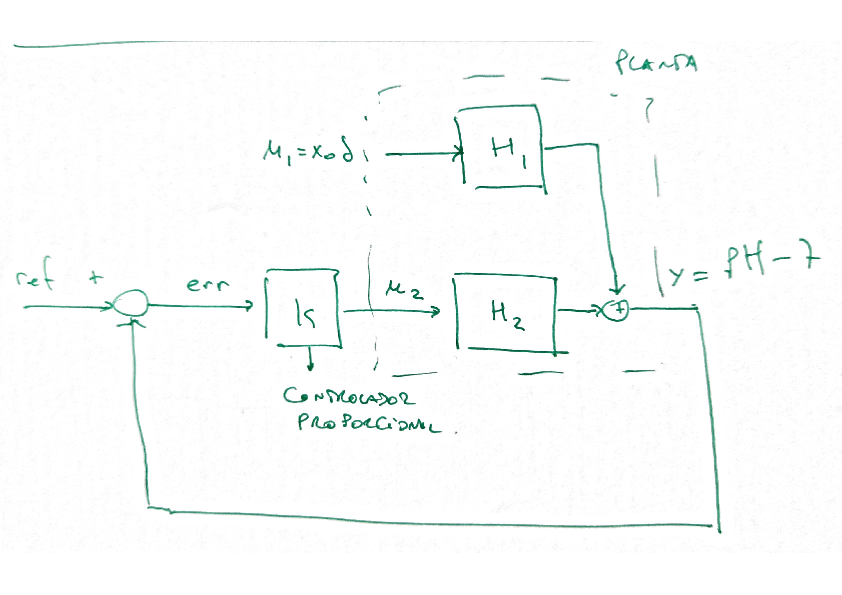 PLANTA
μ₁ = x₀δ
H₁
ref +
err
K
μ₂
H₂
+
y = PH - 7
CONTROLADOR
PROPORCIONAL.